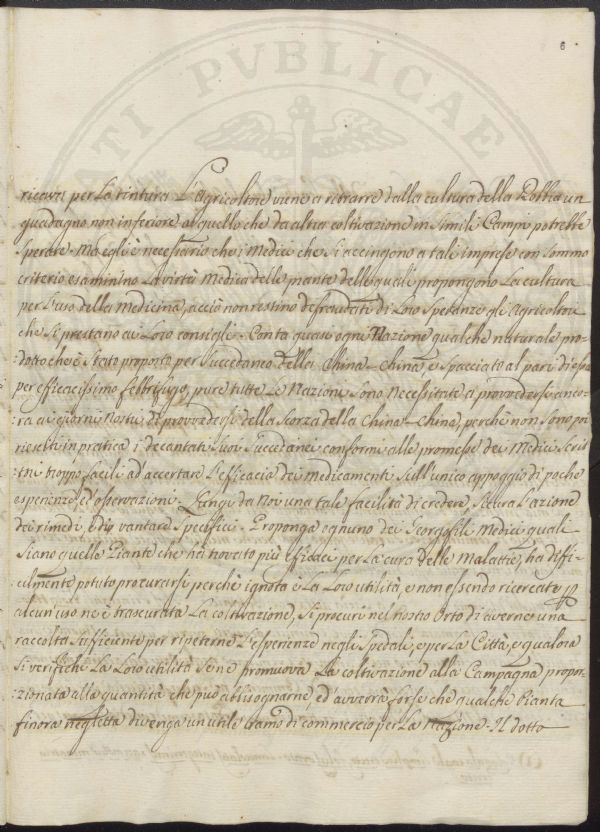 6
ATI PVBLICAE
ricava per la tintura L'Agricoltore viene a ritrarre dalla cultura della Robbia un
guadagno non inferiore a quello che da altra coltivazione in simili Campi potrebbe
sperare. Ma egli è necessario che i Medici che si accingono a tali imprese con sommo
criterio esaminino la virtù Medica delle piante delle quali propongono la cultura
per l'uso della Medicina, acciò non restino defraudati di Loro Speranze gli Agricoltori
che si prestano ai Loro consigli. Conta quasi ogni Nazione qualche naturale pro-
dotto che è stato proposto per Succedaneo della China-China, e spacciato al pari di essa
per efficacissimo febbrifugo, pure tutte le Nazioni sono necessitate a provvedersi anco-
:ra ai giorni Nostri di provvedersi della Scorza della China-China, perchè non sono poi
riesciti in pratica i decantati suoi Succedanei conformi alle promesse dei Medici Scrit-
:tori troppo facili ad accertare l'efficacia dei medicamenti sull'unico appoggio di poche
esperienze, ed osservazioni. Lungi da Noi una tale facilità di credere sicura l'azione
dei rimedi, e di vantare Specifici. Proponga ognuno dei Georgofili Medici quali
siano quelle Piante che ha trovato più efficaci per la cura delle Malattie, ha diffi-
:cilmente potuto procurarsi perchè ignota è la Loro utilità, e non essendo ricercate per
alcun uso ne è trascurata la coltivazione, si procuri nel nostro Orto di averne una
raccolta sufficiente per ripeterne l'esperienze negli Spedali, e per la Città, e qualora
si verifichi la Loro utilità se ne promuova la coltivazione alla Campagna propor-
:zionata alla quantità che può abbisognarne, ed avverrà forse che qualche Pianta
finora negletta divenga un utile ramo di commercio per la Nazione. Il dotto